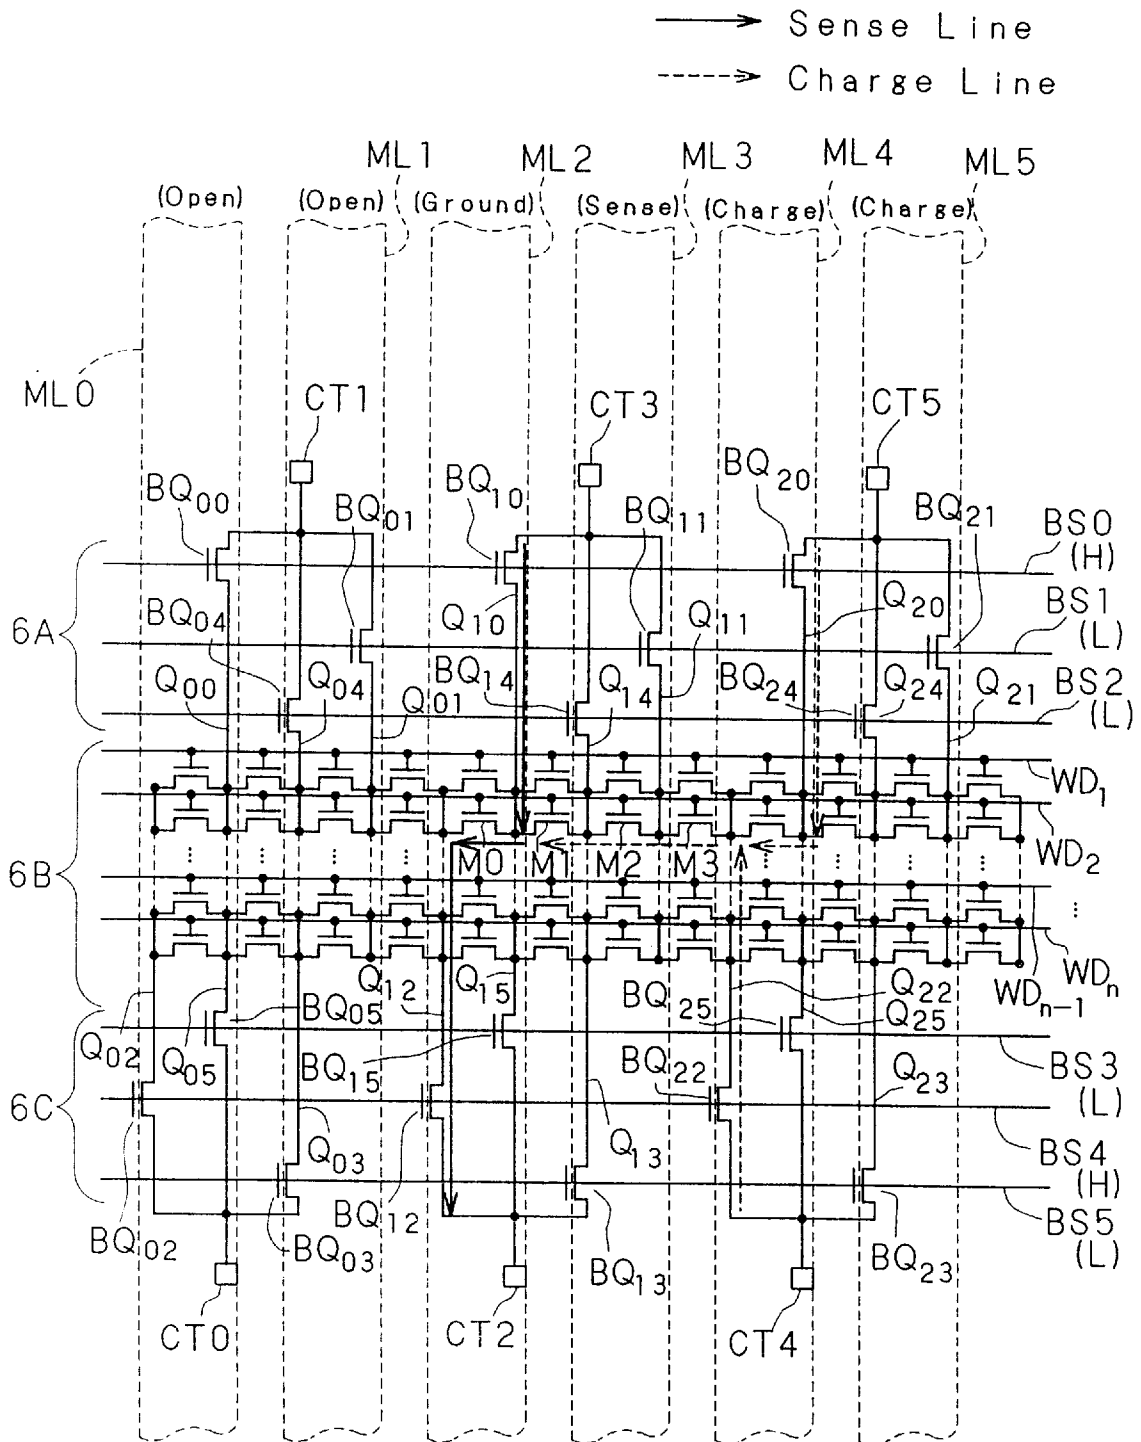 Sense Line
Charge Line
ML1 ML2 ML3 ML4 ML5
(Open) (Open) (Ground) (Sense) (Charge) (Charge)
ML0
CT1 CT3 CT5
BQ00 BQ01 BQ10 BQ11 BQ20 BQ21
BS0
(H)
6A
BQ04 Q10 Q11 Q20
BS1
(L)
Q00 Q04 Q01 BQ14 Q14 BQ24 Q24 Q21
BS2
(L)
WD1
6B
M0 M1 M2 M3
WD2
⋮ ⋮ ⋮ ⋮ ⋮ ⋮ ⋮
WDn
WDn-1
Q12 Q15 Q22
Q02 Q05 BQ05 BQ15 BQ25 Q25
BS3
(L)
6C
BQ22 Q23
BS4
(H)
Q03 Q13
BS5
(L)
BQ02 BQ03 BQ12 BQ13 BQ23
CT0 CT2 CT4